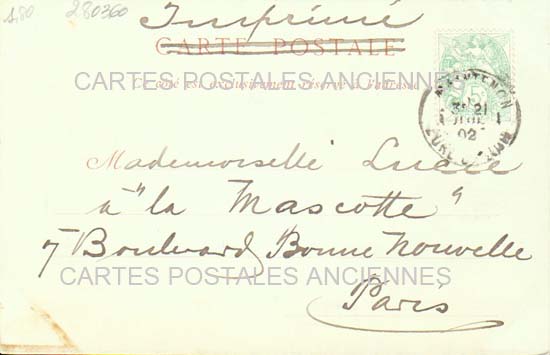 1,80 280360
Imprimé
CARTE POSTALE
Ce côté est exclusivement réservé à l'adresse
CARTES POSTALES ANCIENNES
MAINTENON
21
02
EURE-ET-LOIR
5
Mademoiselle Lucie
à "la Mascotte"
7 Boulevard Bonne Nouvelle
CARTES POSTALES ANCIENNES
Paris